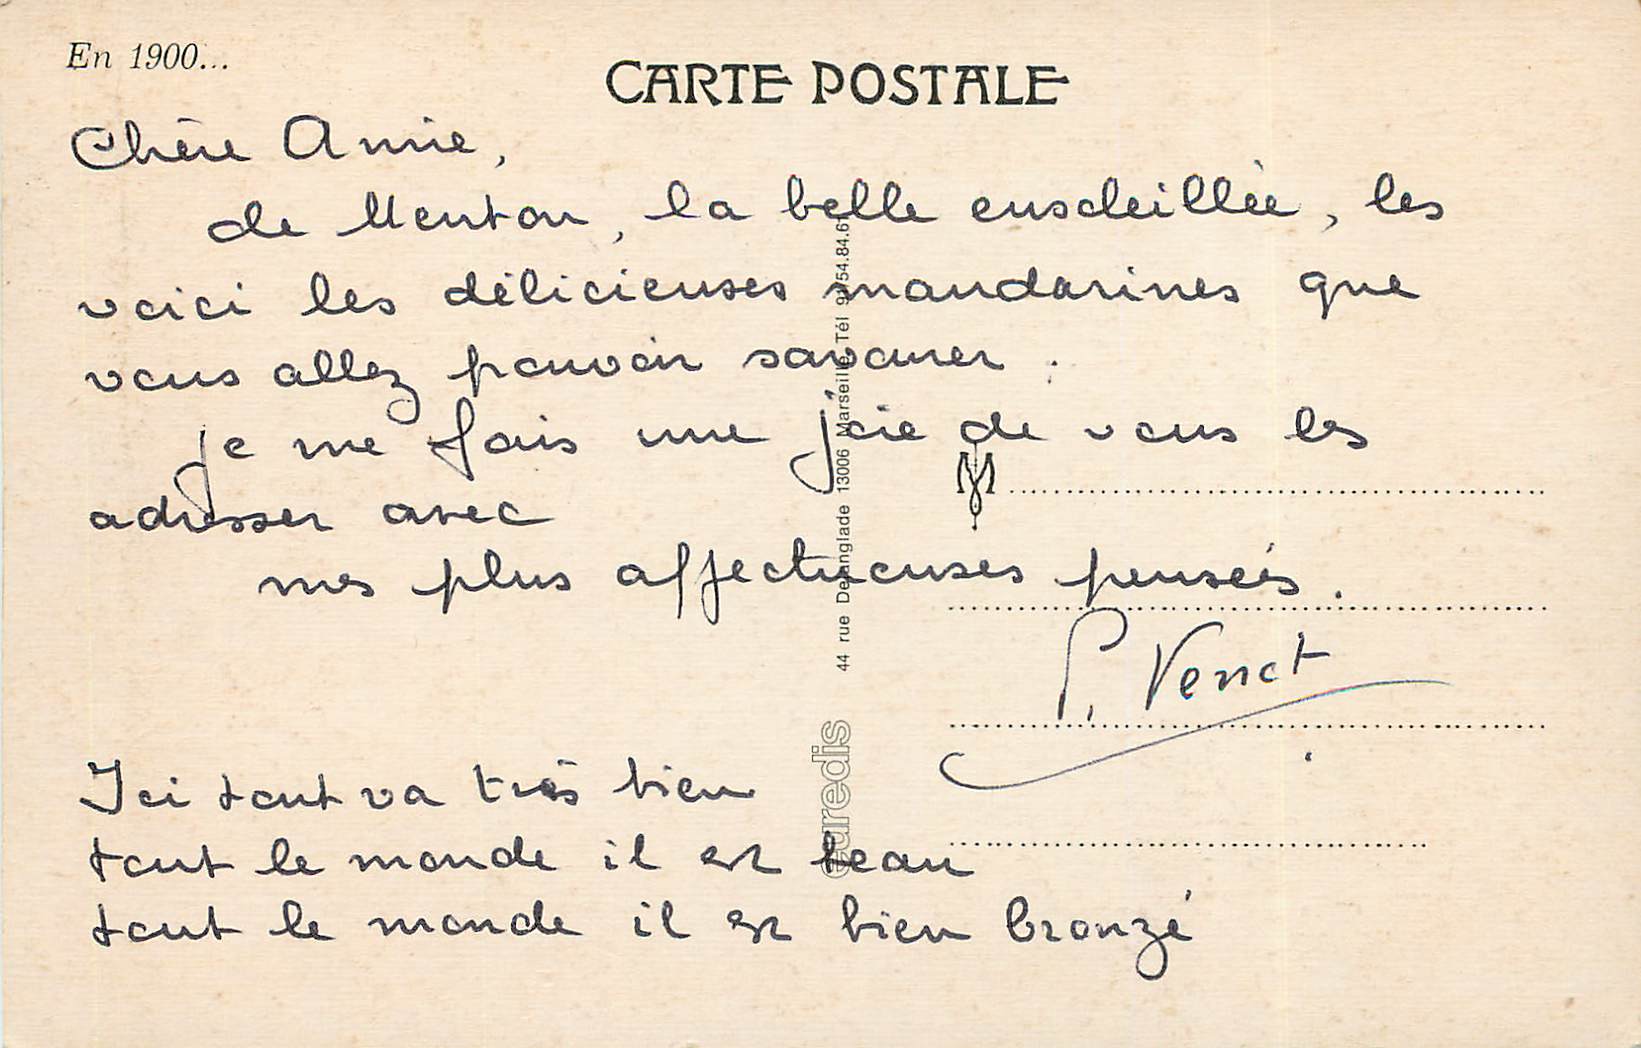 En 1900...
CARTE POSTALE
Chère Annie,
de Menton, la belle ensoleillée, les
voici les délicieuses mandarines que
vous allez pouvoir savourer.
je me fais une joie de vous les
adresser avec
mes plus affectueuses pensées.
P. Venct
Ici tout va très bien
tout le monde il est beau
tout le monde il est bien bronzé
M
euredis
44 rue Dejanglade 13006 Marseille Tél 91/54.84.61